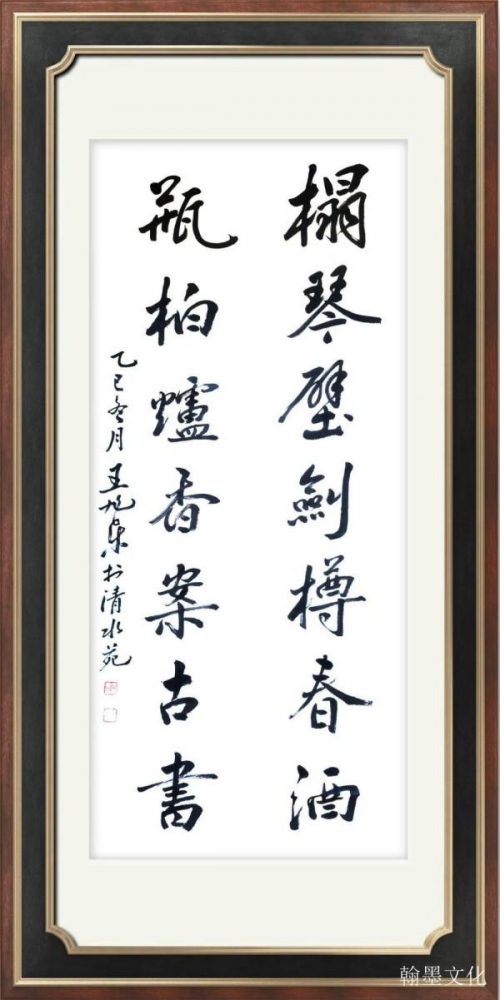 榻琴壁劍樽春酒
瓶柏爐香案古書
乙巳冬月王旭東於清水苑
翰墨文化